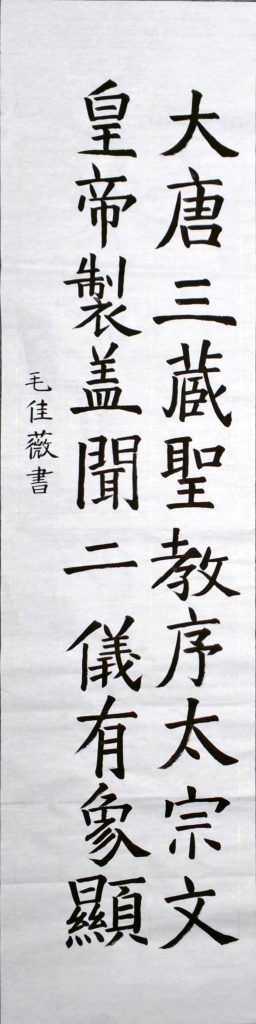 大唐三蔵聖教序太宗文
皇帝製盖聞二儀有象顯
毛佳薇書